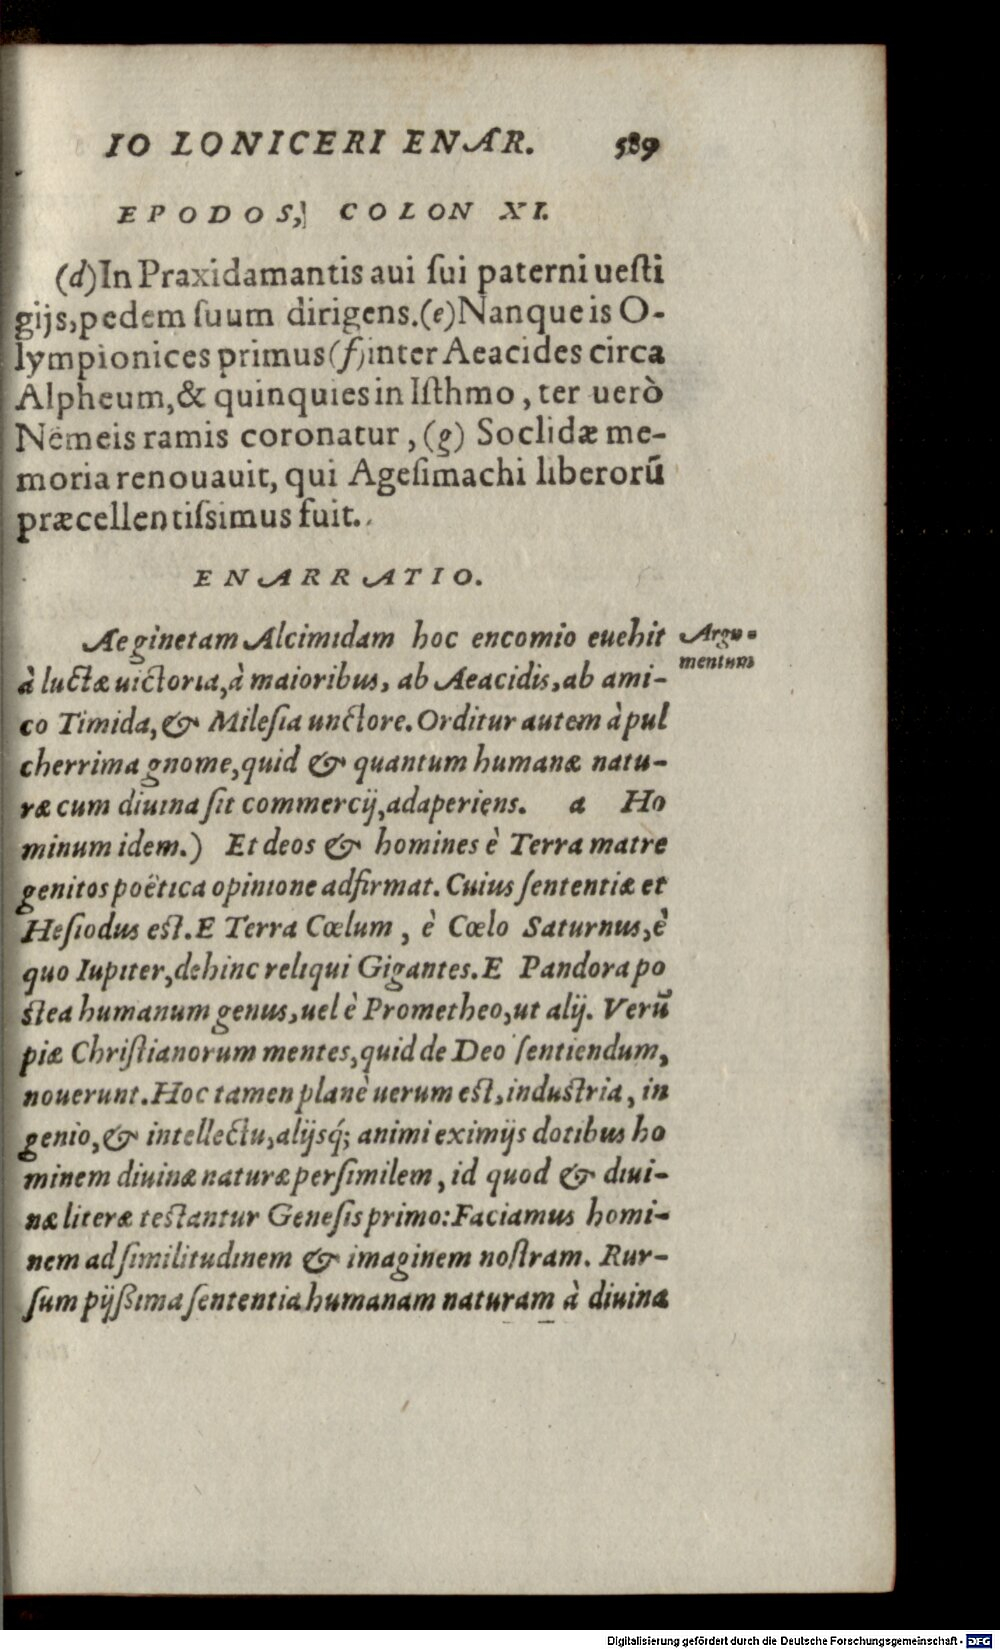 IO LONICERI ENAR. 589
EPODOS, COLON XI.
(d)In Praxidamantis aui ſui paterni ueſti
gijs,pedem ſuum dirigens.(e)Nanque is O-
lympionices primus(f)inter Aeacides circa
Alpheum,& quinquies in Iſthmo, ter uerò
Nemeis ramis coronatur, (g) Soclidæ me-
moria renouauit, qui Ageſimachi liberorū
præcellentiſsimus fuit.
ENARRATIO.
Aeginetam Alcimidam hoc encomio euehit
Argu-
mentum
à luctæ uictoria,à maioribus, ab Aeacidis,ab ami-
co Timida,& Mileſia unctore. Orditur autem à pul
cherrima gnome,quid & quantum humanæ natu-
ræ cum diuina ſit commercij,adaperiens. a Ho
minum idem.) Et deos & homines è Terra matre
genitos poëtica opinione adfirmat. Cuius ſententiæ et
Heſiodus eſt. E Terra Cœlum, è Cœlo Saturnus,è
quo Iupiter,dehinc reliqui Gigantes. E Pandora po
ſtea humanum genus,uel è Prometheo,ut alij. Verū
piæ Chriſtianorum mentes,quid de Deo ſentiendum,
nouerunt. Hoc tamen planè uerum eſt,induſtria, in
genio,& intellectu,alijsq́; animi eximijs dotibus ho
minem diuinæ naturæ perſimilem, id quod & diui-
næ literæ teſtantur Geneſis primo: Faciamus homi-
nem ad ſimilitudinem & imaginem noſtram. Rur-
ſum pijßima ſententia humanam naturam à diuina
Digitalisierung gefördert durch die Deutsche Forschungsgemeinschaft - DFG